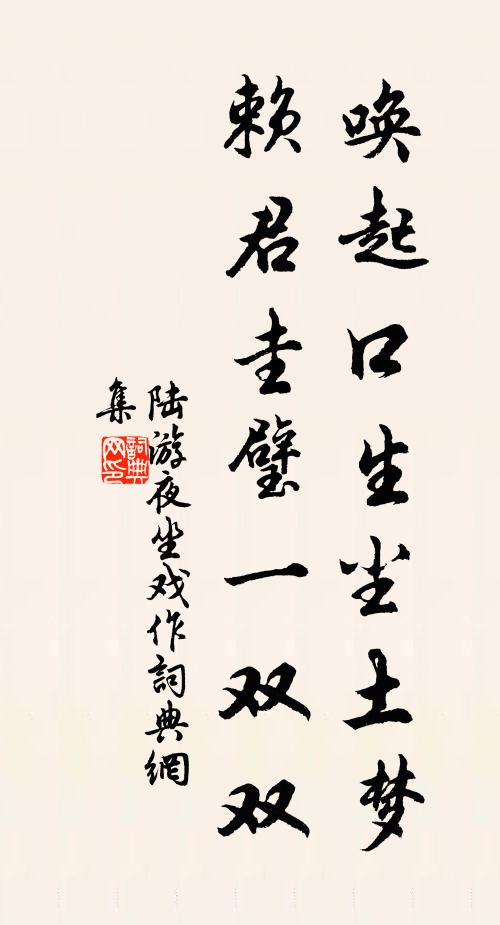 唤起口生尘土梦
赖君圭璧一双双
陆游夜坐戏作詞典網
集
詞典
网印